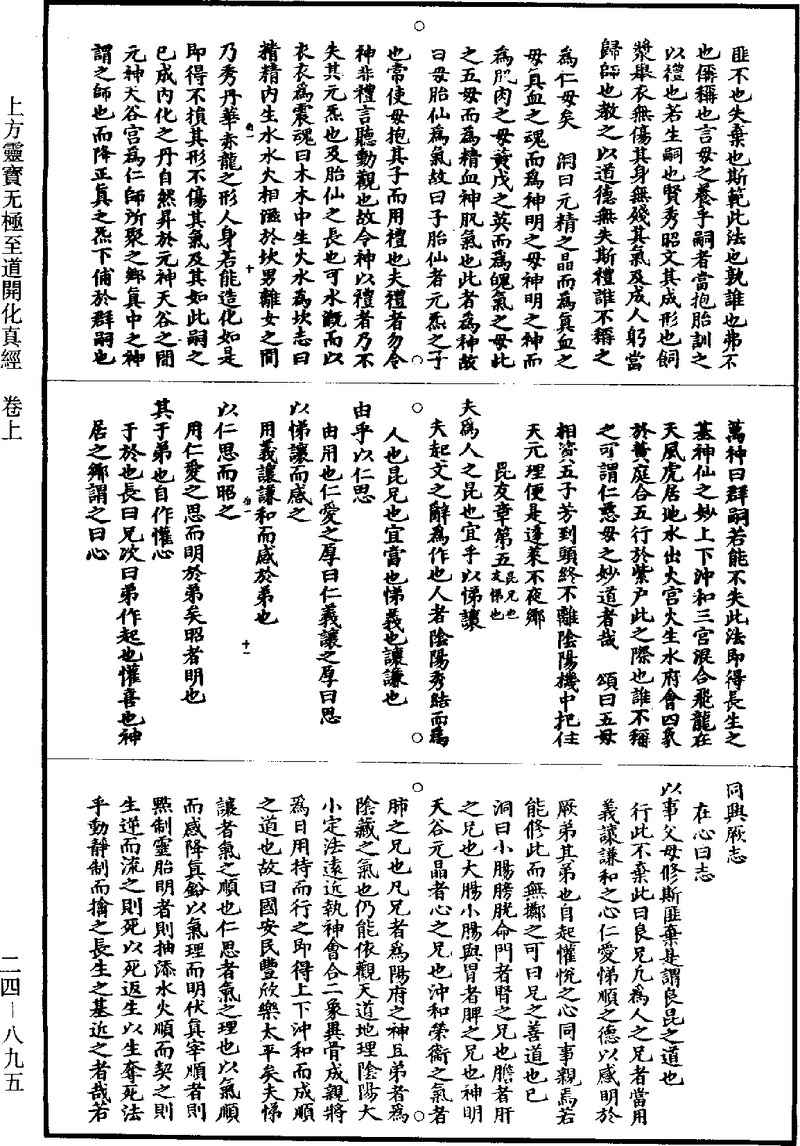 上方靈寶无極至道開化真經 卷上
二四－八九五
匪不也失棄也斯範此法也孰誰也弗不
也偁稱也言毋之養乎嗣者當抱胎訓之
以禮也若生嗣也賢秀昭文其成形也飼
漿舉衣無傷其身無殘其氣及成人躬當
歸師也教之以道德無失斯禮誰不稱之
為仁毋矣 洞曰元精之晶而為真血之
毋真血之魂而為神明之毋神明之神而
為肌肉之毋黃戊之英而為魄氣之毋此
之五毋而為精血神肌氣也此者為神故
曰毋胎仙為氣故曰子胎仙者元炁之子
也常使毋抱其子而用禮也夫禮者勿令
神非禮言聽動觀也故令神以禮者乃不
失其元炁也及胎仙之長也可水溉而以
衣衣為震魂曰木木中生火水為坎志曰
精精內生水水火相濟於坎男離女之間
乃秀丹華赤龍之形人身若能造化如是
即得不損其形不傷其氣及其如此嗣之
已成內化之丹自然昇於元神天谷之間
元神天谷宮為仁師所聚之鄉真中之神
謂之師也而降正真之炁下俌於群嗣也
萬神曰群嗣若能不失此法即得長生之
基神仙之妙上下沖和三宮混合飛龍在
天風虎居地水出火宮火生水府會四象
於黃庭合五行於紫戶此之際也誰不稱
之可謂仁慈毋之妙道者哉 頌曰五毋
相資五子芳到頭終不離陰陽機中把住
天元理便是蓬萊不夜鄉
昆友章第五昆兄也友悌也
夫為人之昆也宜乎以悌讓
夫起文之辭為作也人者陰陽秀結而為
人也昆兄也宜當也悌義也讓謙也
由乎以仁思
由用也仁愛之厚曰仁義讓之厚曰思
以悌讓而感之
用義讓謙和而感於弟也
以仁思而昭之
用仁愛之思而明於弟矣昭者明也
其于弟也自作懽心
于於也長曰兄次曰弟作起也懽喜也神
居之鄉謂之曰心
同興厥志
在心曰志
以事父母修斯匪棄是謂良昆之道也
行此不棄此曰良兄凡為人之兄者當用
義讓謙和之心仁愛悌順之德以感明於
厥弟其弟也自起懽悅之心同事親焉若
能修此而無擲之可曰兄之善道也已
洞曰小腸膀胱命門者腎之兄也膽者肝
之兄也大腸小腸與胃者脾之兄也神明
天谷元晶者心之兄也沖和榮衛之氣者
肺之兄也凡兄者為陽府之神且弟者為
陰藏之氣也仍能依觀天道地理陰陽大
小定法遠近執神會合二象異骨成親將
為日用持而行之即得上下沖和而成順
之道也故曰國安民豐欣樂太平矣夫悌
讓者氣之順也仁思者氣之理也以氣順
而感降真鉛以氣理而明伏真宰順者則
㸃制靈胎明者則抽添水火順而契之則
生逆而流之則死以死返生以生奪死法
乎動靜制而擒之長生之基近之者哉若